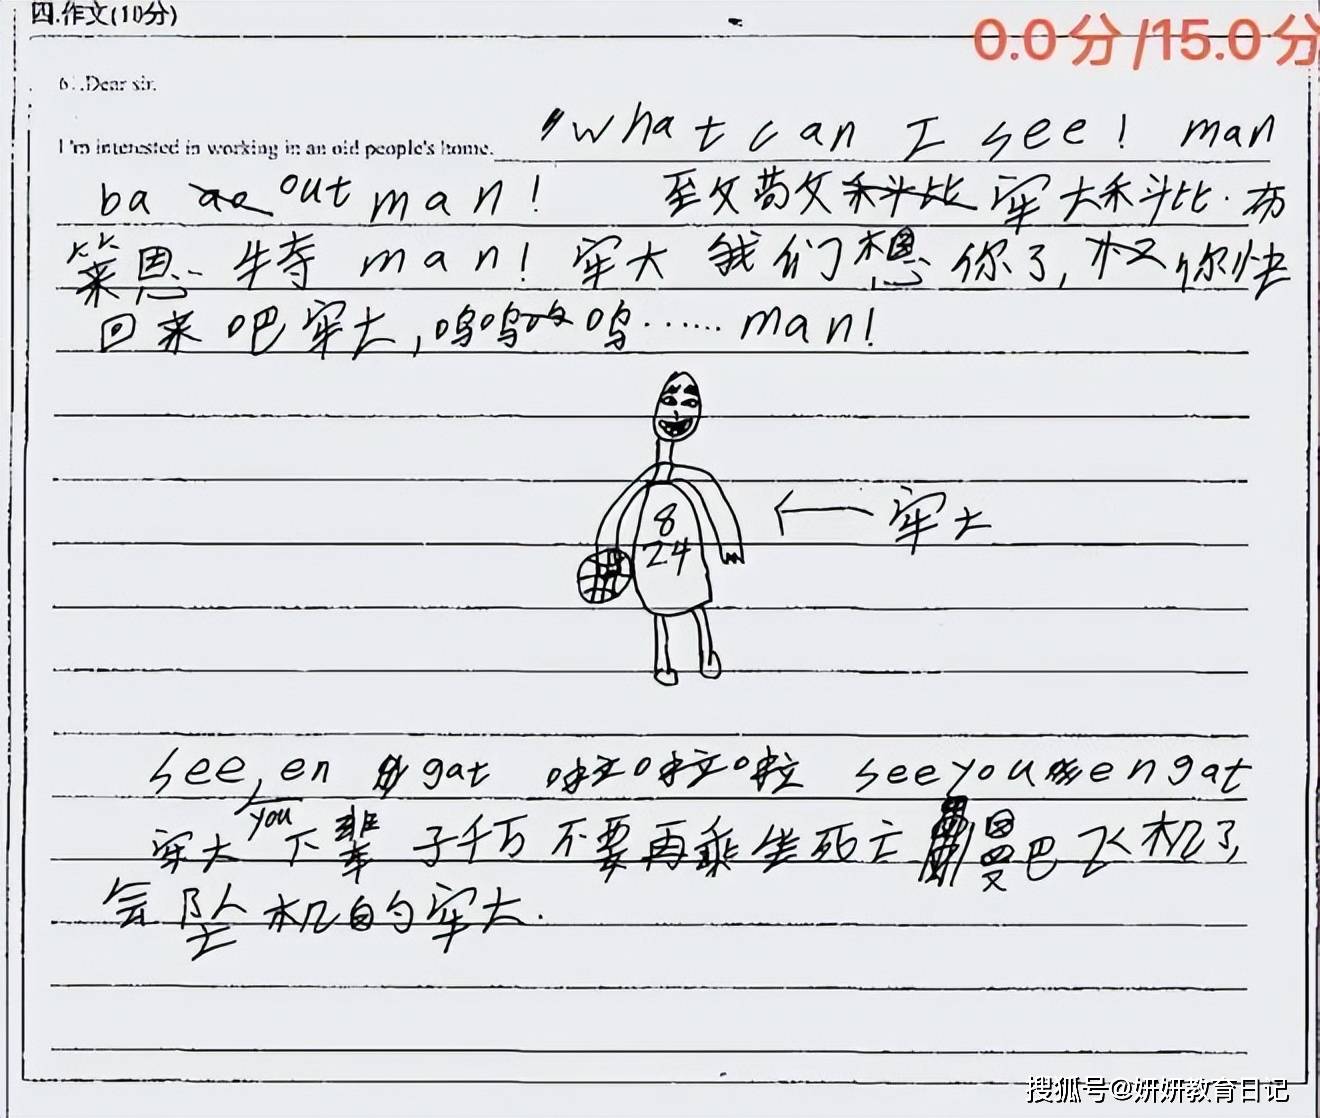 四.作文(10分)
0.0分/15.0分
6.Dear sir.
I'm interested in working in an old people's home. "what can I see! man
ba out man! 至父苟父 牢大科比·布
莱恩特 man! 牢大 我们想你了, 你快
回来吧牢大,呜呜呜……man!
8
24
←牢大
see you en gat 啦啦啦 see you en gat
牢大下辈子千万不要再乘坐死亡曼巴飞机了,
会坠机的牢大.
搜狐号@妍妍教育日记